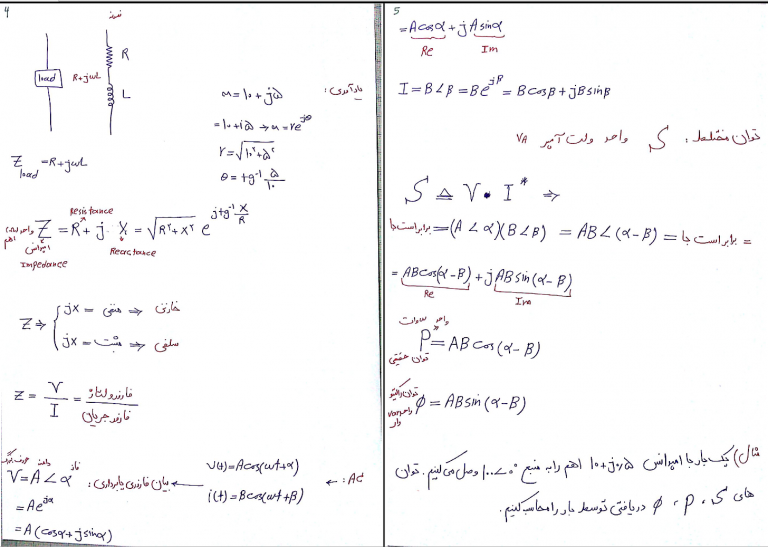 4
نمونه
load
R+jωL
R
L
یادآوری:
n = 10 + j5
= 10 + j5 → n = re^{jθ}
r = √(10² + 5²)
θ = tg⁻¹ 5/10
Z load = R+jωL
Resistance
Z = R + j . X = √(R² + X²) e^{j tg⁻¹ X/R}
اهم
امپدانس
Impedance
Reactance
Z ⇒ { jx = منفی ⇒ خازنی
jx = مثبت ⇒ سلفی
Z = V/I = فازور ولتاژ / فازور جریان
AC: ←
v(t) = A cos(ωt+α)
i(t) = B cos(ωt+β)
بیان فازوری یا برداری:
دامنه
فاز
V = A∠α
= Ae^{jα}
= A (cosα + j sinα)
5
= A cosα + j A sinα
Re Im
I = B∠β = Be^{jβ} = B cosβ + jB sinβ
توان مختلط: S واحد ولت آمپر VA
S ≜ V • I* ⇒
برابر است با = (A∠α)(B∠β) = AB∠(α-β) = برابر است با =
= AB cos(α-β) + j AB sin(α-β)
Re Im
واحد وات
P = AB cos(α-β)
توان حقیقی
توان راکتیو
واحد var
وار
φ = AB sin(α-β)
مثال) یک بار با امپدانس 10+j0,5 اهم را به منبع 100∠0° وصل می کنیم. توان
های S ، P ، φ دریافتی توسط بار را محاسبه کنیم.